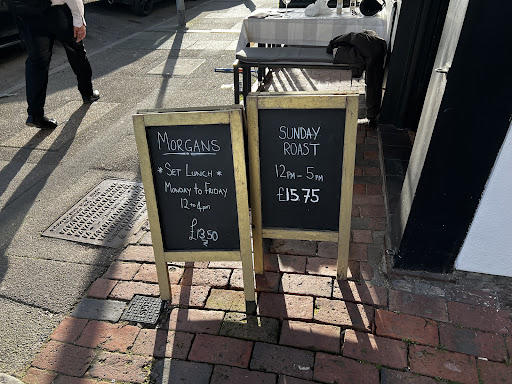 MORGANS
* SET LUNCH *
MONDAY TO FRIDAY
12 to 4pm
£13.50
SUNDAY
ROAST
12PM - 5PM
£15.75